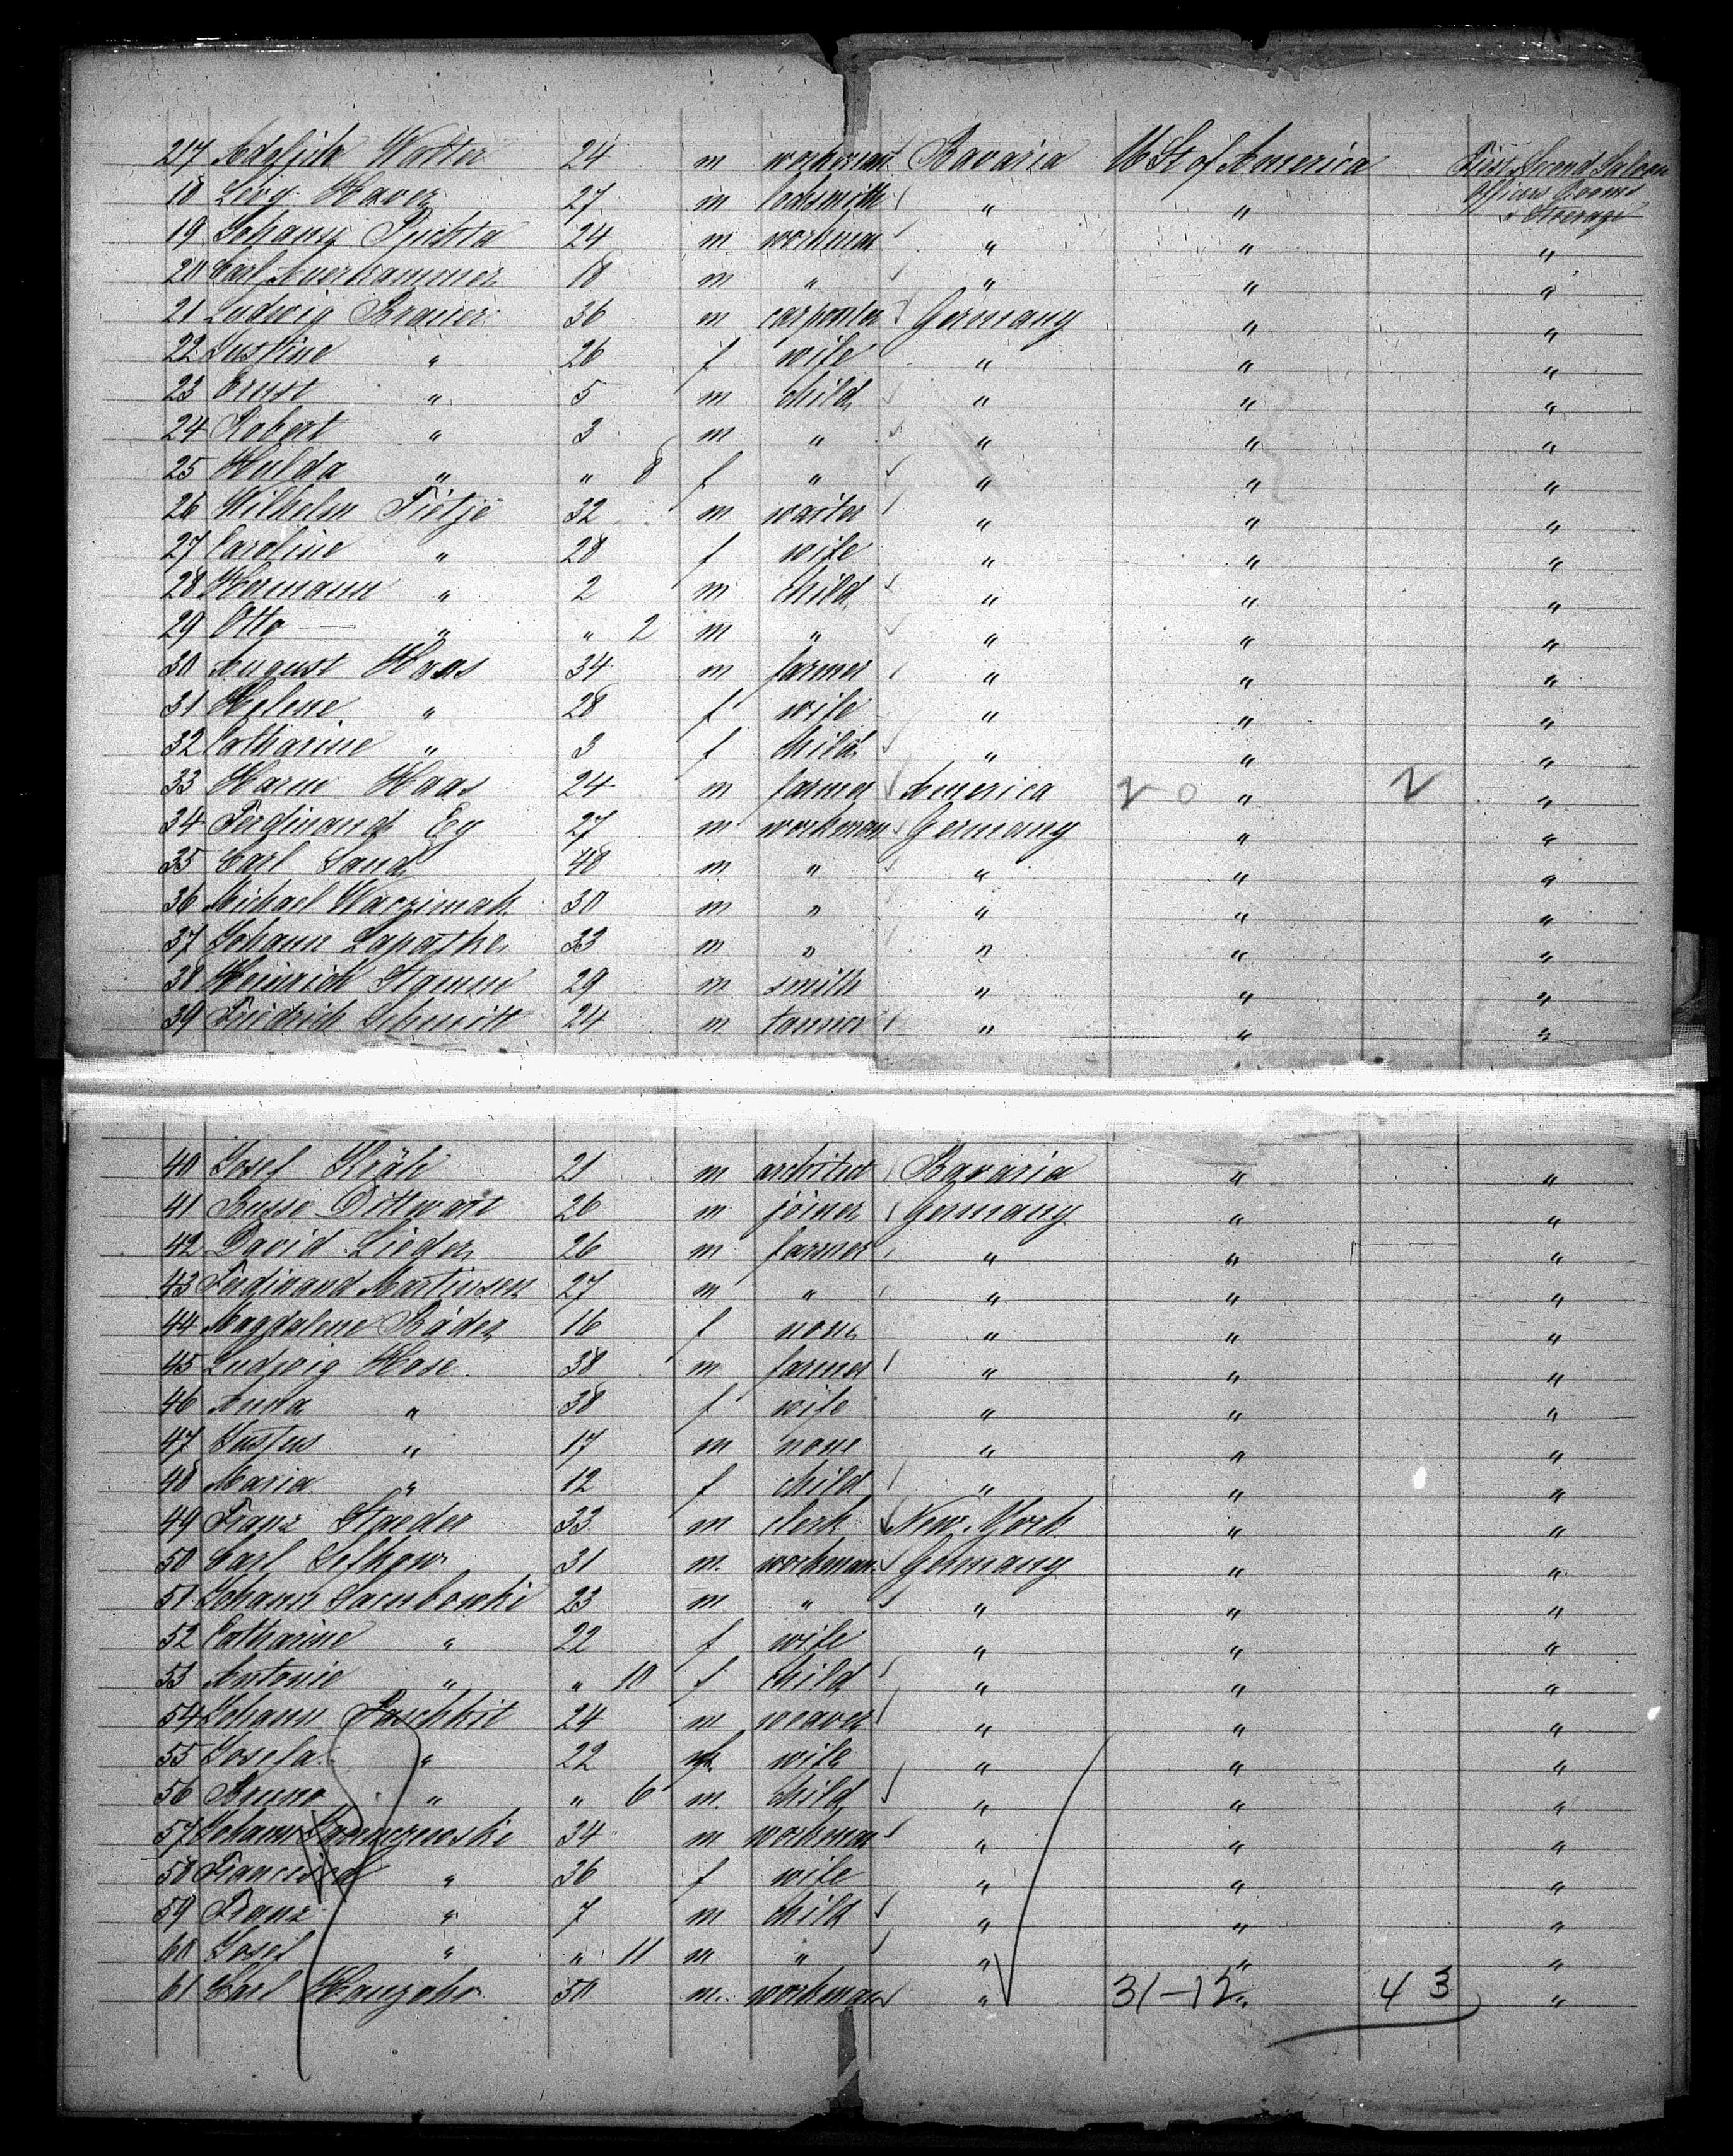 217 Adolph Walter 24 m workman Bavaria U St of America First, Second Saloon
Officers Rooms
& Steerage
18 Xaver 27 m locksmith " "
19 Johann Puchta 24 m workman " " "
20 Carl Auerhammer 18 m " " " "
21 Ludwig Brauer 36 m carpenter Germany " "
22 Justine " 26 f wife " " "
23 Ernst " 5 m child " " "
24 Robert " 3 m " " " "
25 Hulda " " 8 f " " " "
26 Wilhelm Tietje 32 m waiter " " "
27 Caroline " 28 f wife " " "
28 Hermann " 2 m child " " "
29 Otto — " " 2 m " " " "
30 August Haas 34 m farmer " " "
31 Helene " 28 f wife " " "
32 Catharine " 3 f child " " "
33 Harm Haas 24 m farmer America 20 " 2 "
34 Ferdinand Ey 27 m workman Germany " "
35 Carl Sand 48 m " " " "
36 Michael Warzimak 30 m " " " "
37 Johann Lapatke 33 m " " " "
38 Heinrich Stamm 29 m smith " " "
39 Friedrich Schmitt 24 m tanner " " "
40 Josef 21 m architect Bavaria " "
41 Busse Dittwart 26 m joiner Germany " "
42 David Lieder 26 m farmer " " "
43 Ferdinand Martinsen 27 m " " " "
44 Magdalene Räder 16 f none " " "
45 Ludwig Hose 38 m farmer " " "
46 Anna " 38 f wife " " "
47 Justus " 17 m none " " "
48 Maria " 12 f child " " "
49 Franz Staeder 33 m clerk New-York " "
50 Carl Selkow 31 m. workman Germany " "
51 Johann Sarnbowski 23 m " " " "
52 Catharine " 22 f wife " " "
53 Antonie " " 10 f child " " "
54 Johann Paschkit 24 m weaver " " "
55 Josefa " 22 f wife " " "
56 Bruno " " 6 m. child " " "
57 Johann 34 m workman " " "
58 Francisca " 36 f wife " " "
59 Franz " 7 m child " " "
60 Josef " " 11 m " " " "
61 Carl Hanzahr 50 m. workman " 31-12 " 43 "